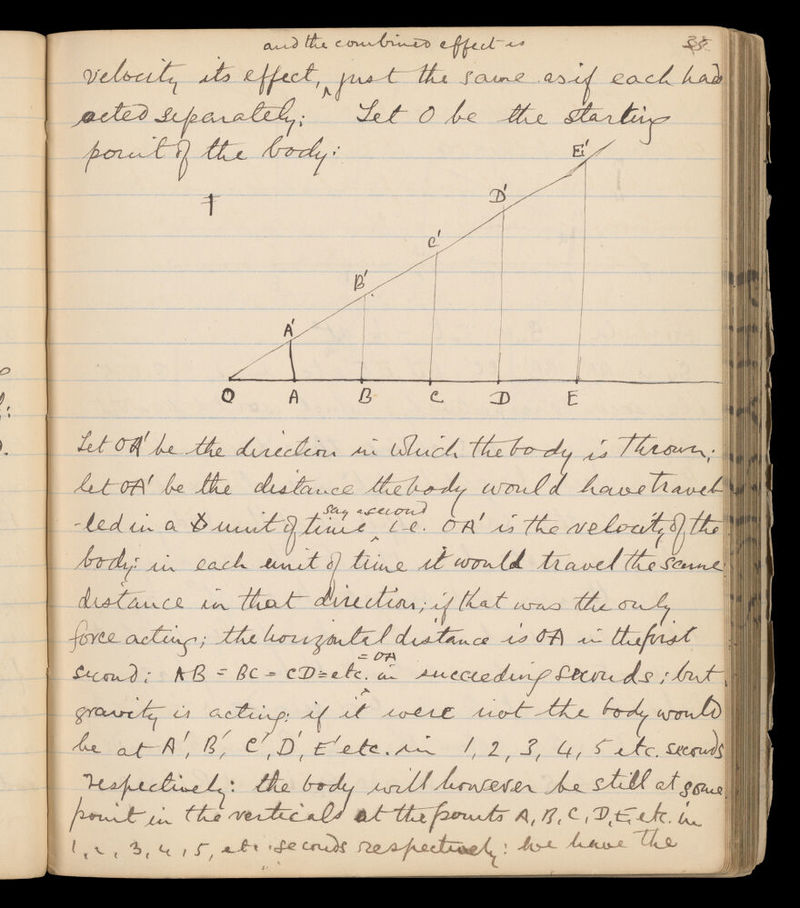 and the combined effect is
38
velocity its effect, ‸ just the same as if each had
acted separately: Let O be the starting
point of the body:
E'
D'
C'
B'
A'
O A B C D E
Let OA' be the direction in which the body is thrown;
let OA' be the distance the body would have travel
say a second
-led in a unit of time ‸ i.e. OA' is the velocity of the
body: in each unit of time it would travel the same
distance in that direction; if that was the only
force acting; the horizontal distance is OA in the first
= OA
second: AB = BC = CD = etc. ‸ in succeeding seconds; but
gravity is acting: if it were not the body would
be at A', B', C', D', E' etc. in 1, 2, 3, 4, 5 etc. seconds
respectively: the body will however be still at some
point in the verticals at the points A, B, C, D, E, etc. in
1, 2, 3, 4, 5, etc. seconds respectively: we have the